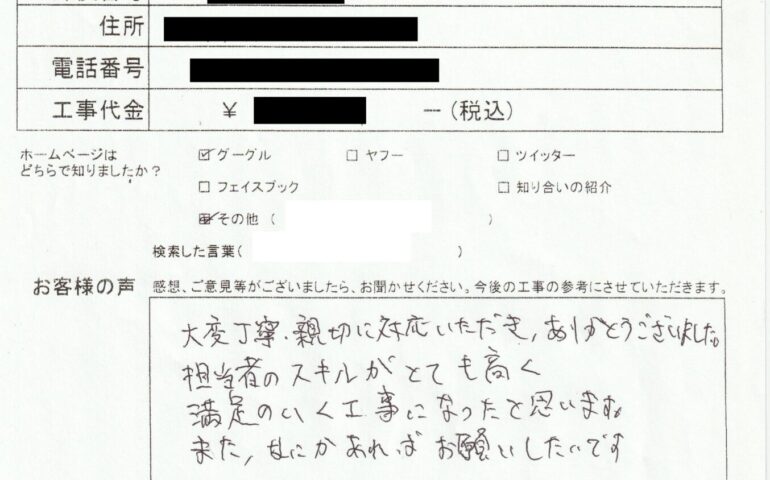 住所
電話番号
工事代金 ¥ ー(税込)
ホームページは
どちらで知りましたか？
☑グーグル □ヤフー □ツイッター
□フェイスブック □知り合いの紹介
☑その他（ ）
検索した言葉( )
お客様の声 感想、ご意見等がございましたら、お聞かせください。今後の工事の参考にさせていただきます。
大変丁寧・親切に対応いただき,ありがとうございました。
担当者のスキルがとても高く
満足のいく工事になったと思います。
また,なにかあればお願いしたいです